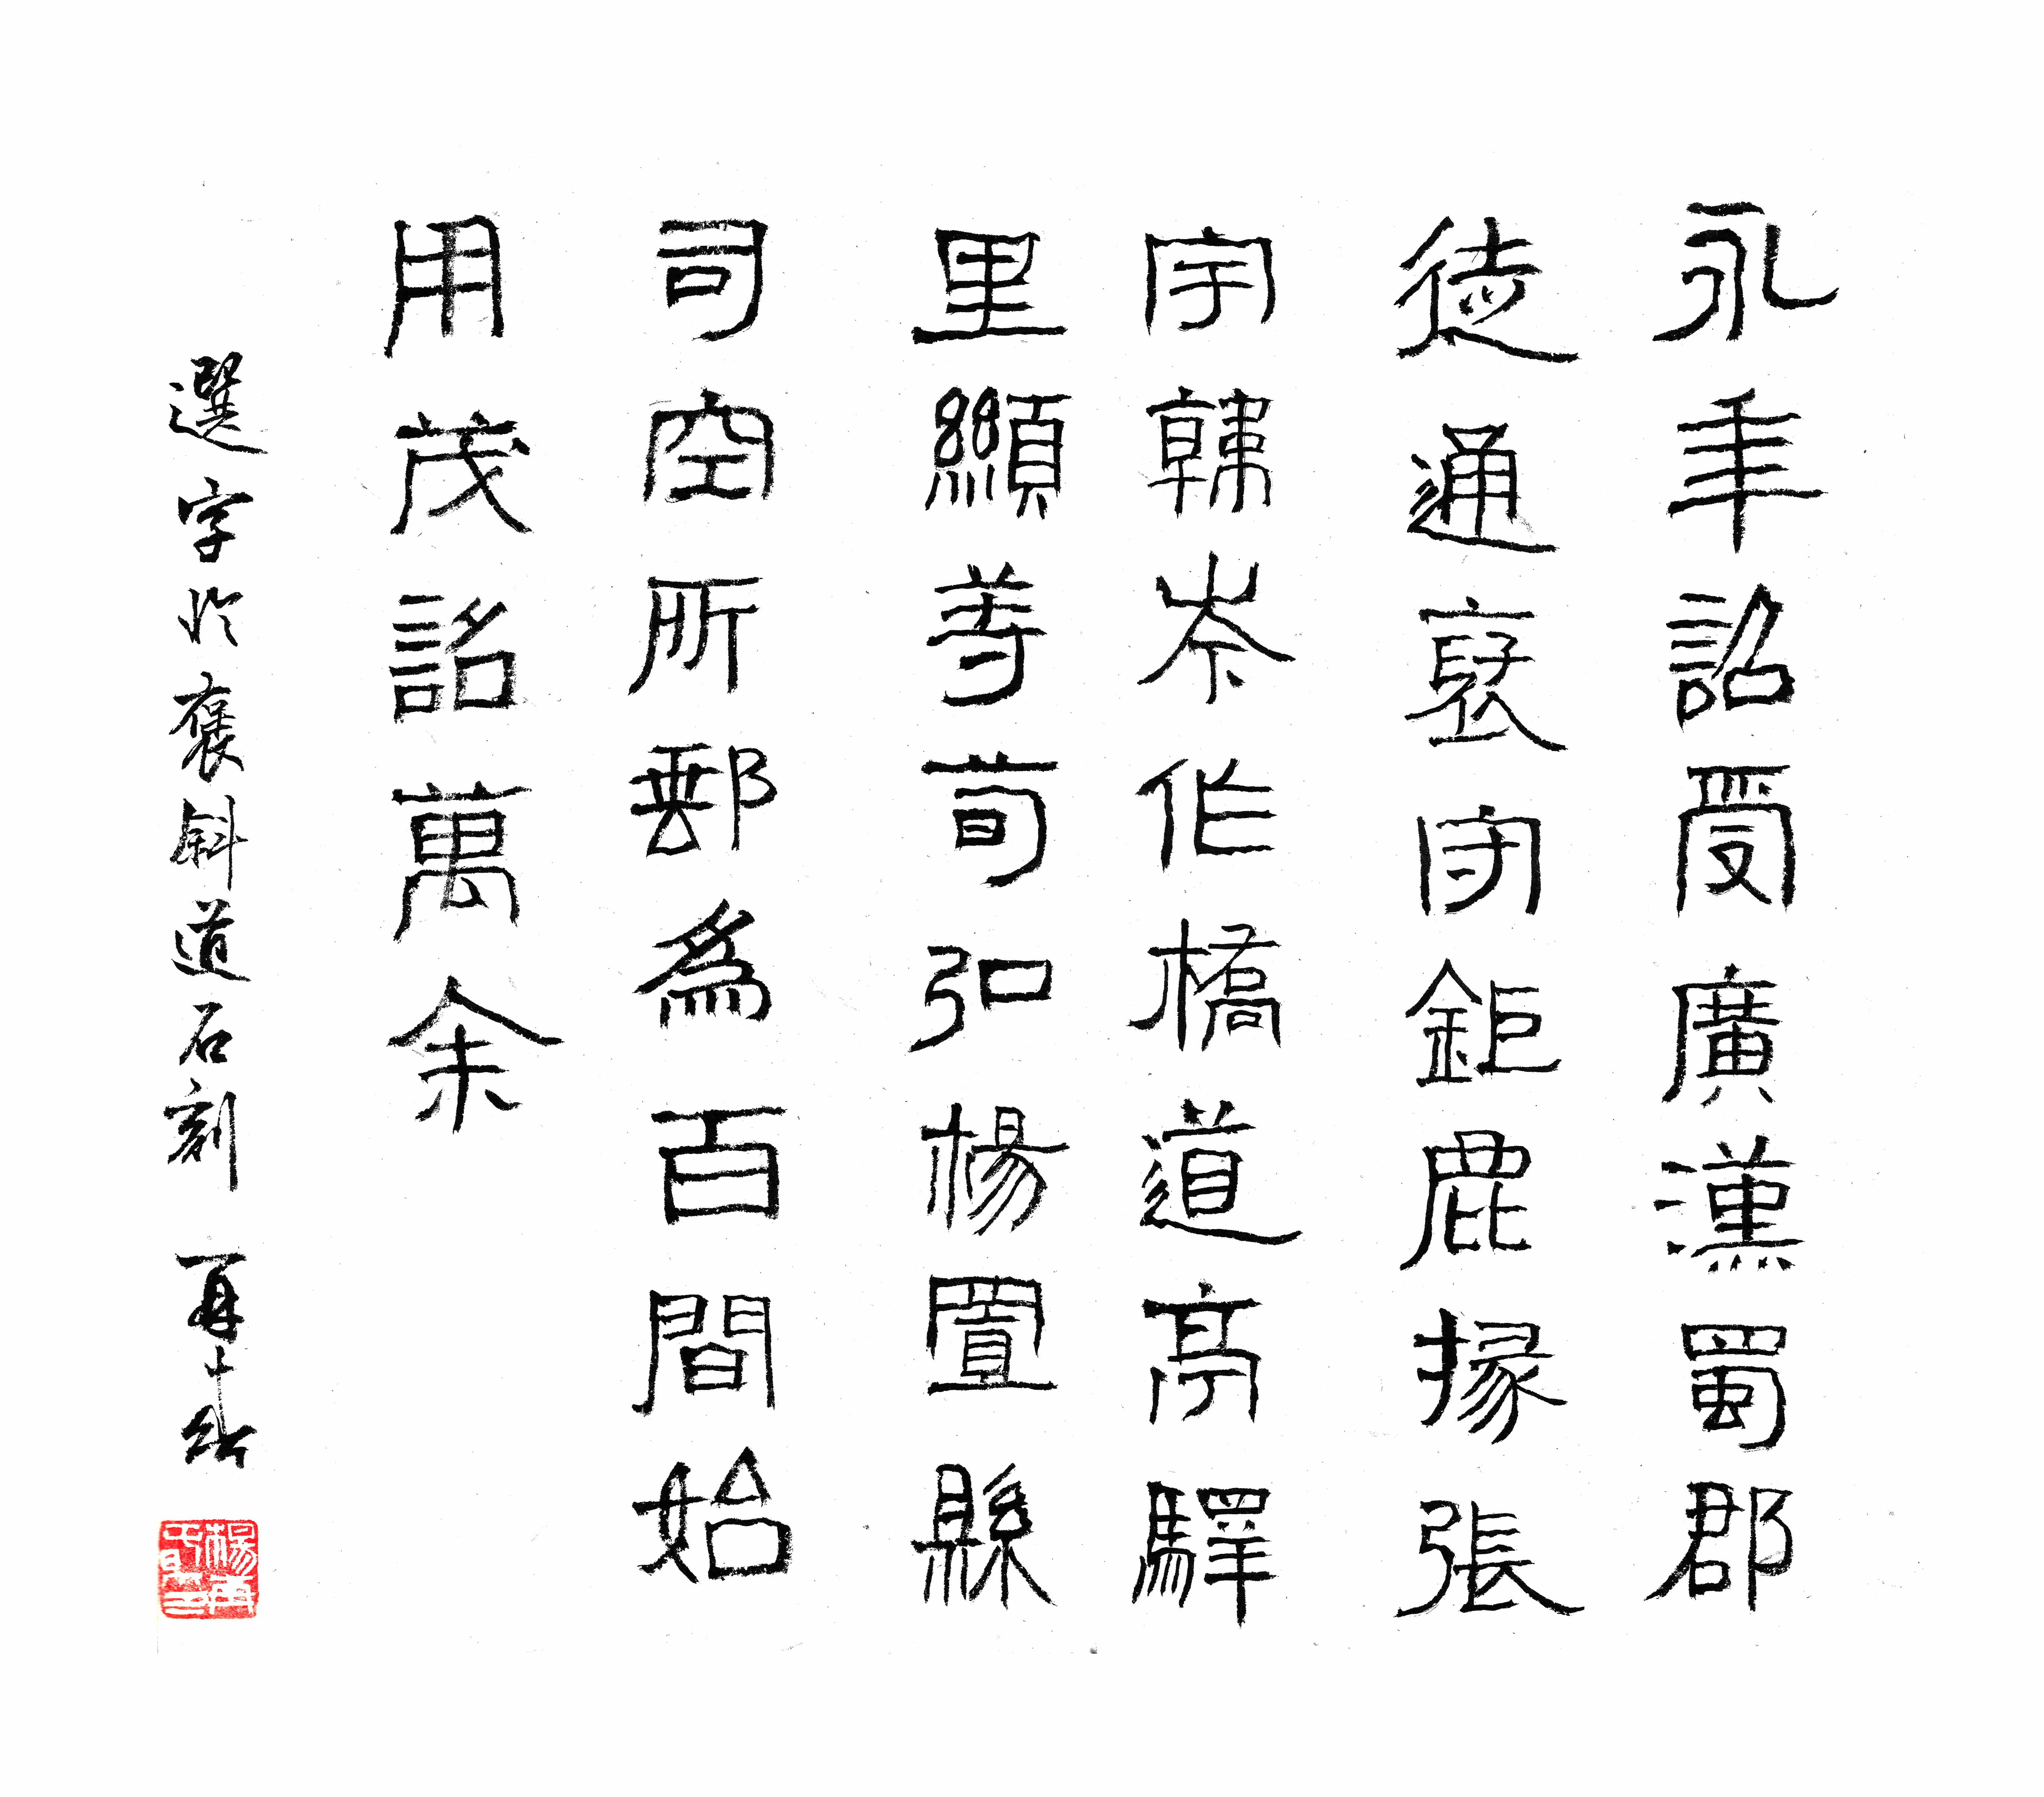 永年詔受廣漢蜀郡
徒通褒守鉅鹿掾張
宇韓岑作橋道亭驛
里顯等荀弘楊置縣
司空所郵為百間始
用茂詺萬余
選字於褒斜道石刻 再